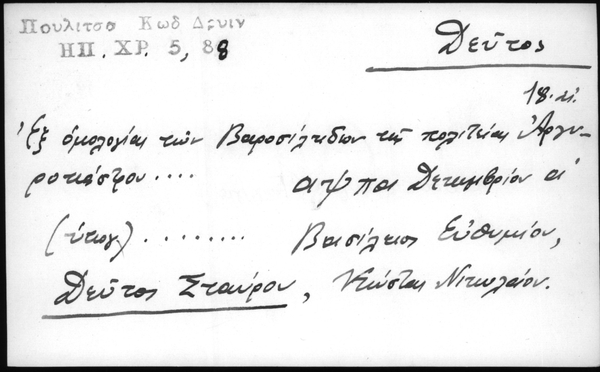 Πουλιτσα Κωδ Δρυιν
ΗΠ. ΧΡ. 5, 88
Δεῦτος
18. αἰ.
Ἐξ ὁμολογίας τῶν Βαροσιλιδων τῆς πολιτείας Ἀργυ-
ροκάστρου .... αψπα Δεκεμβρίου α΄
(ὑπογ) ........ Βασίλειος Εὐθυμίου,
Δεῦτος Σταύρου, Κώστας Νικολάου.